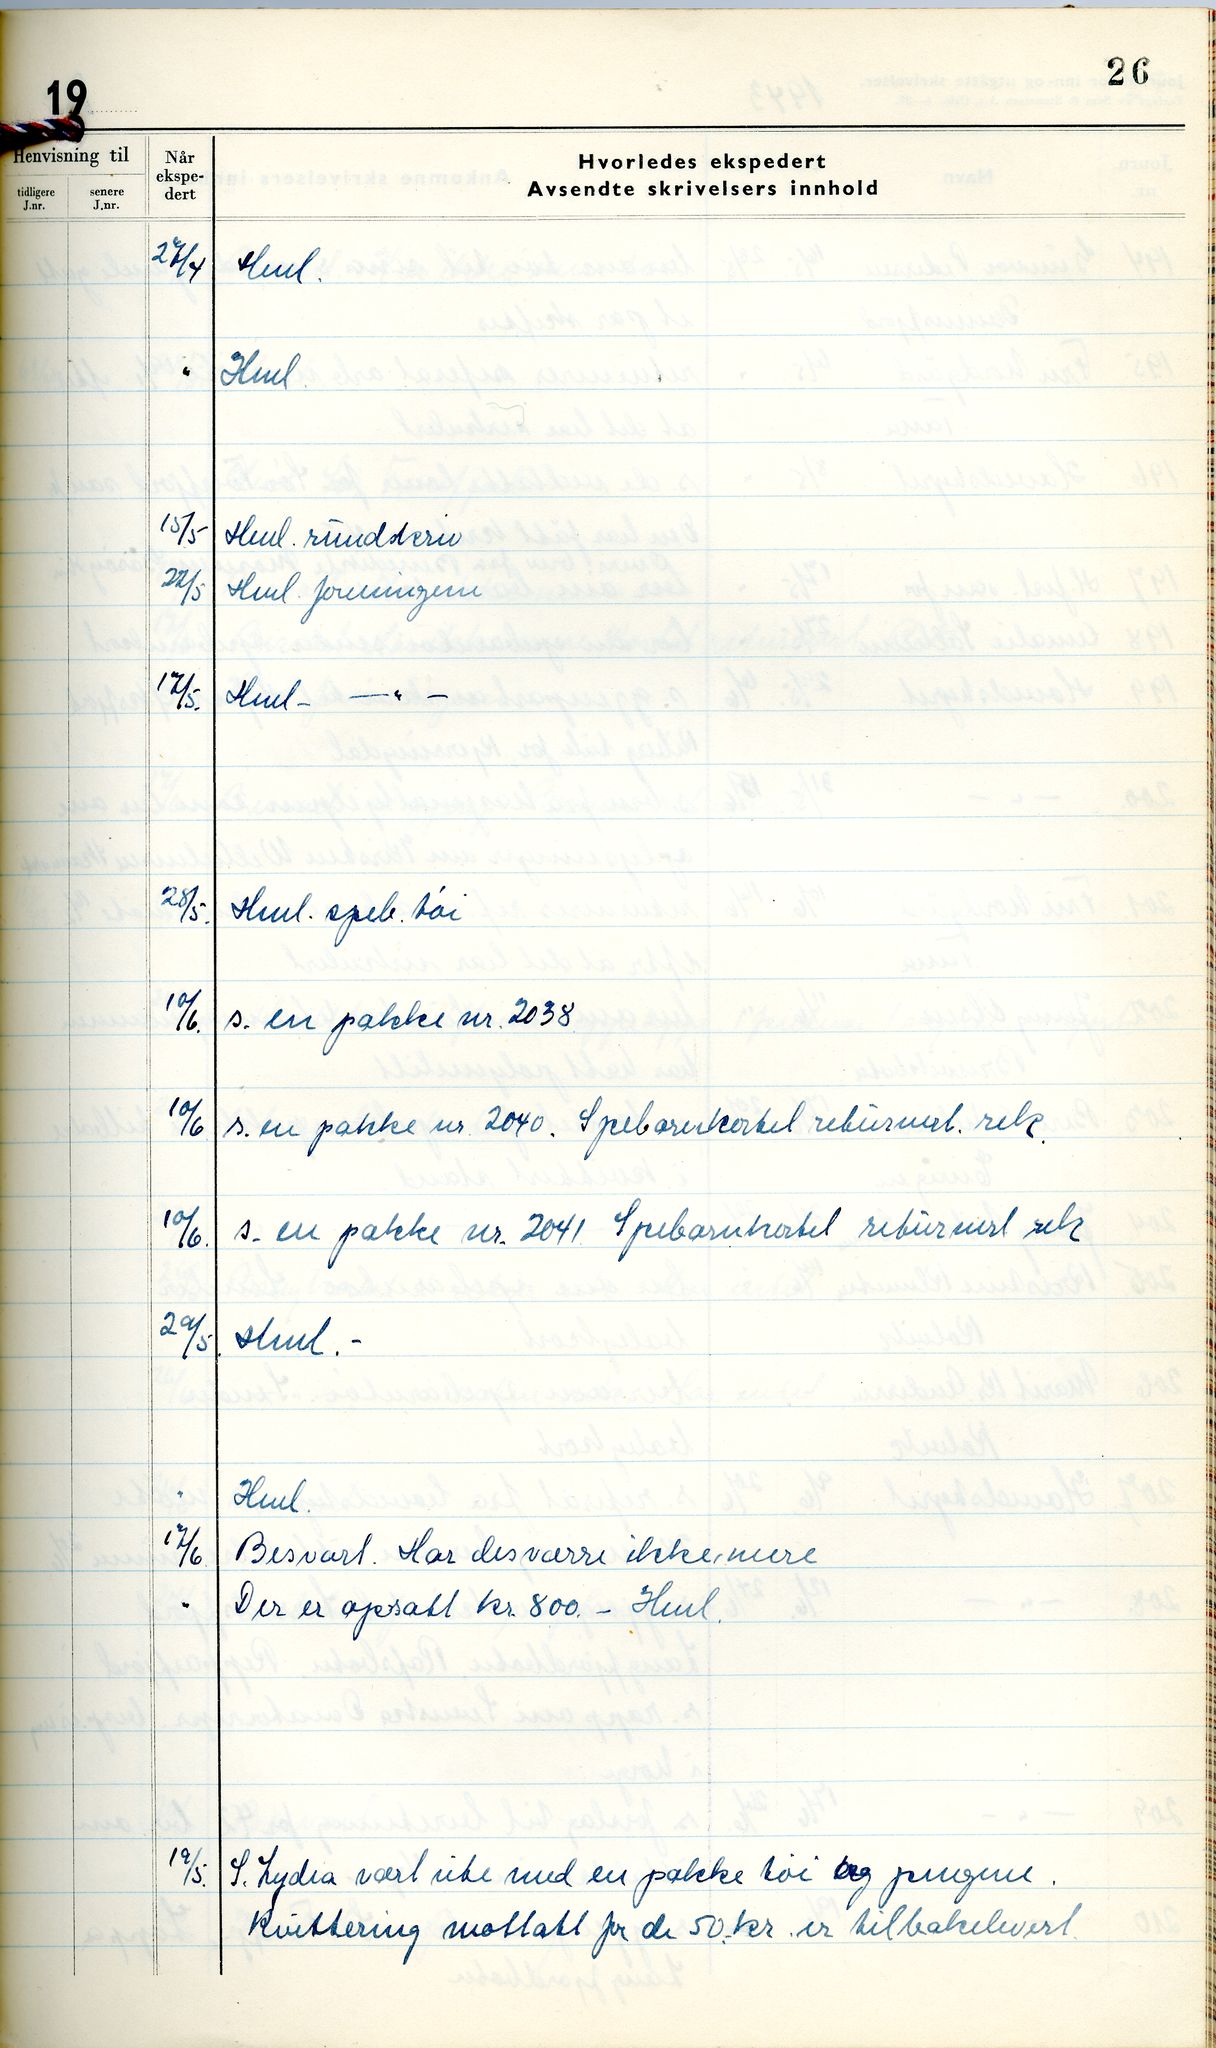 26
19
Henvisning til
tidligere J.nr.
senere J.nr.
Når ekspe-dert
Hvorledes ekspedert
Avsendte skrivelsers innhold
27/4 Henl.
" Henl.
15/5 Henl. rundskriv
22/5 Henl. foreningene
17/5. Henl - — " —
28/5. Henl. speb. töi
10/6. s. en pakke nr. 2038
10/6 s. en pakke nr. 2040. Spebarnkortet returnert. rek.
10/6. s. en pakke nr. 2041 Spebarnkortet returnert rek
29/5. Henl. -
" Henl.
17/6 Besvart. Har desværre ikke mere
" Der er opsatt kr. 800. - Henl.
19/5. S. Lydia vært ute med en pakke töi og pengene.
Kvittering mottatt for de 50.- kr. er tilbakelevert.